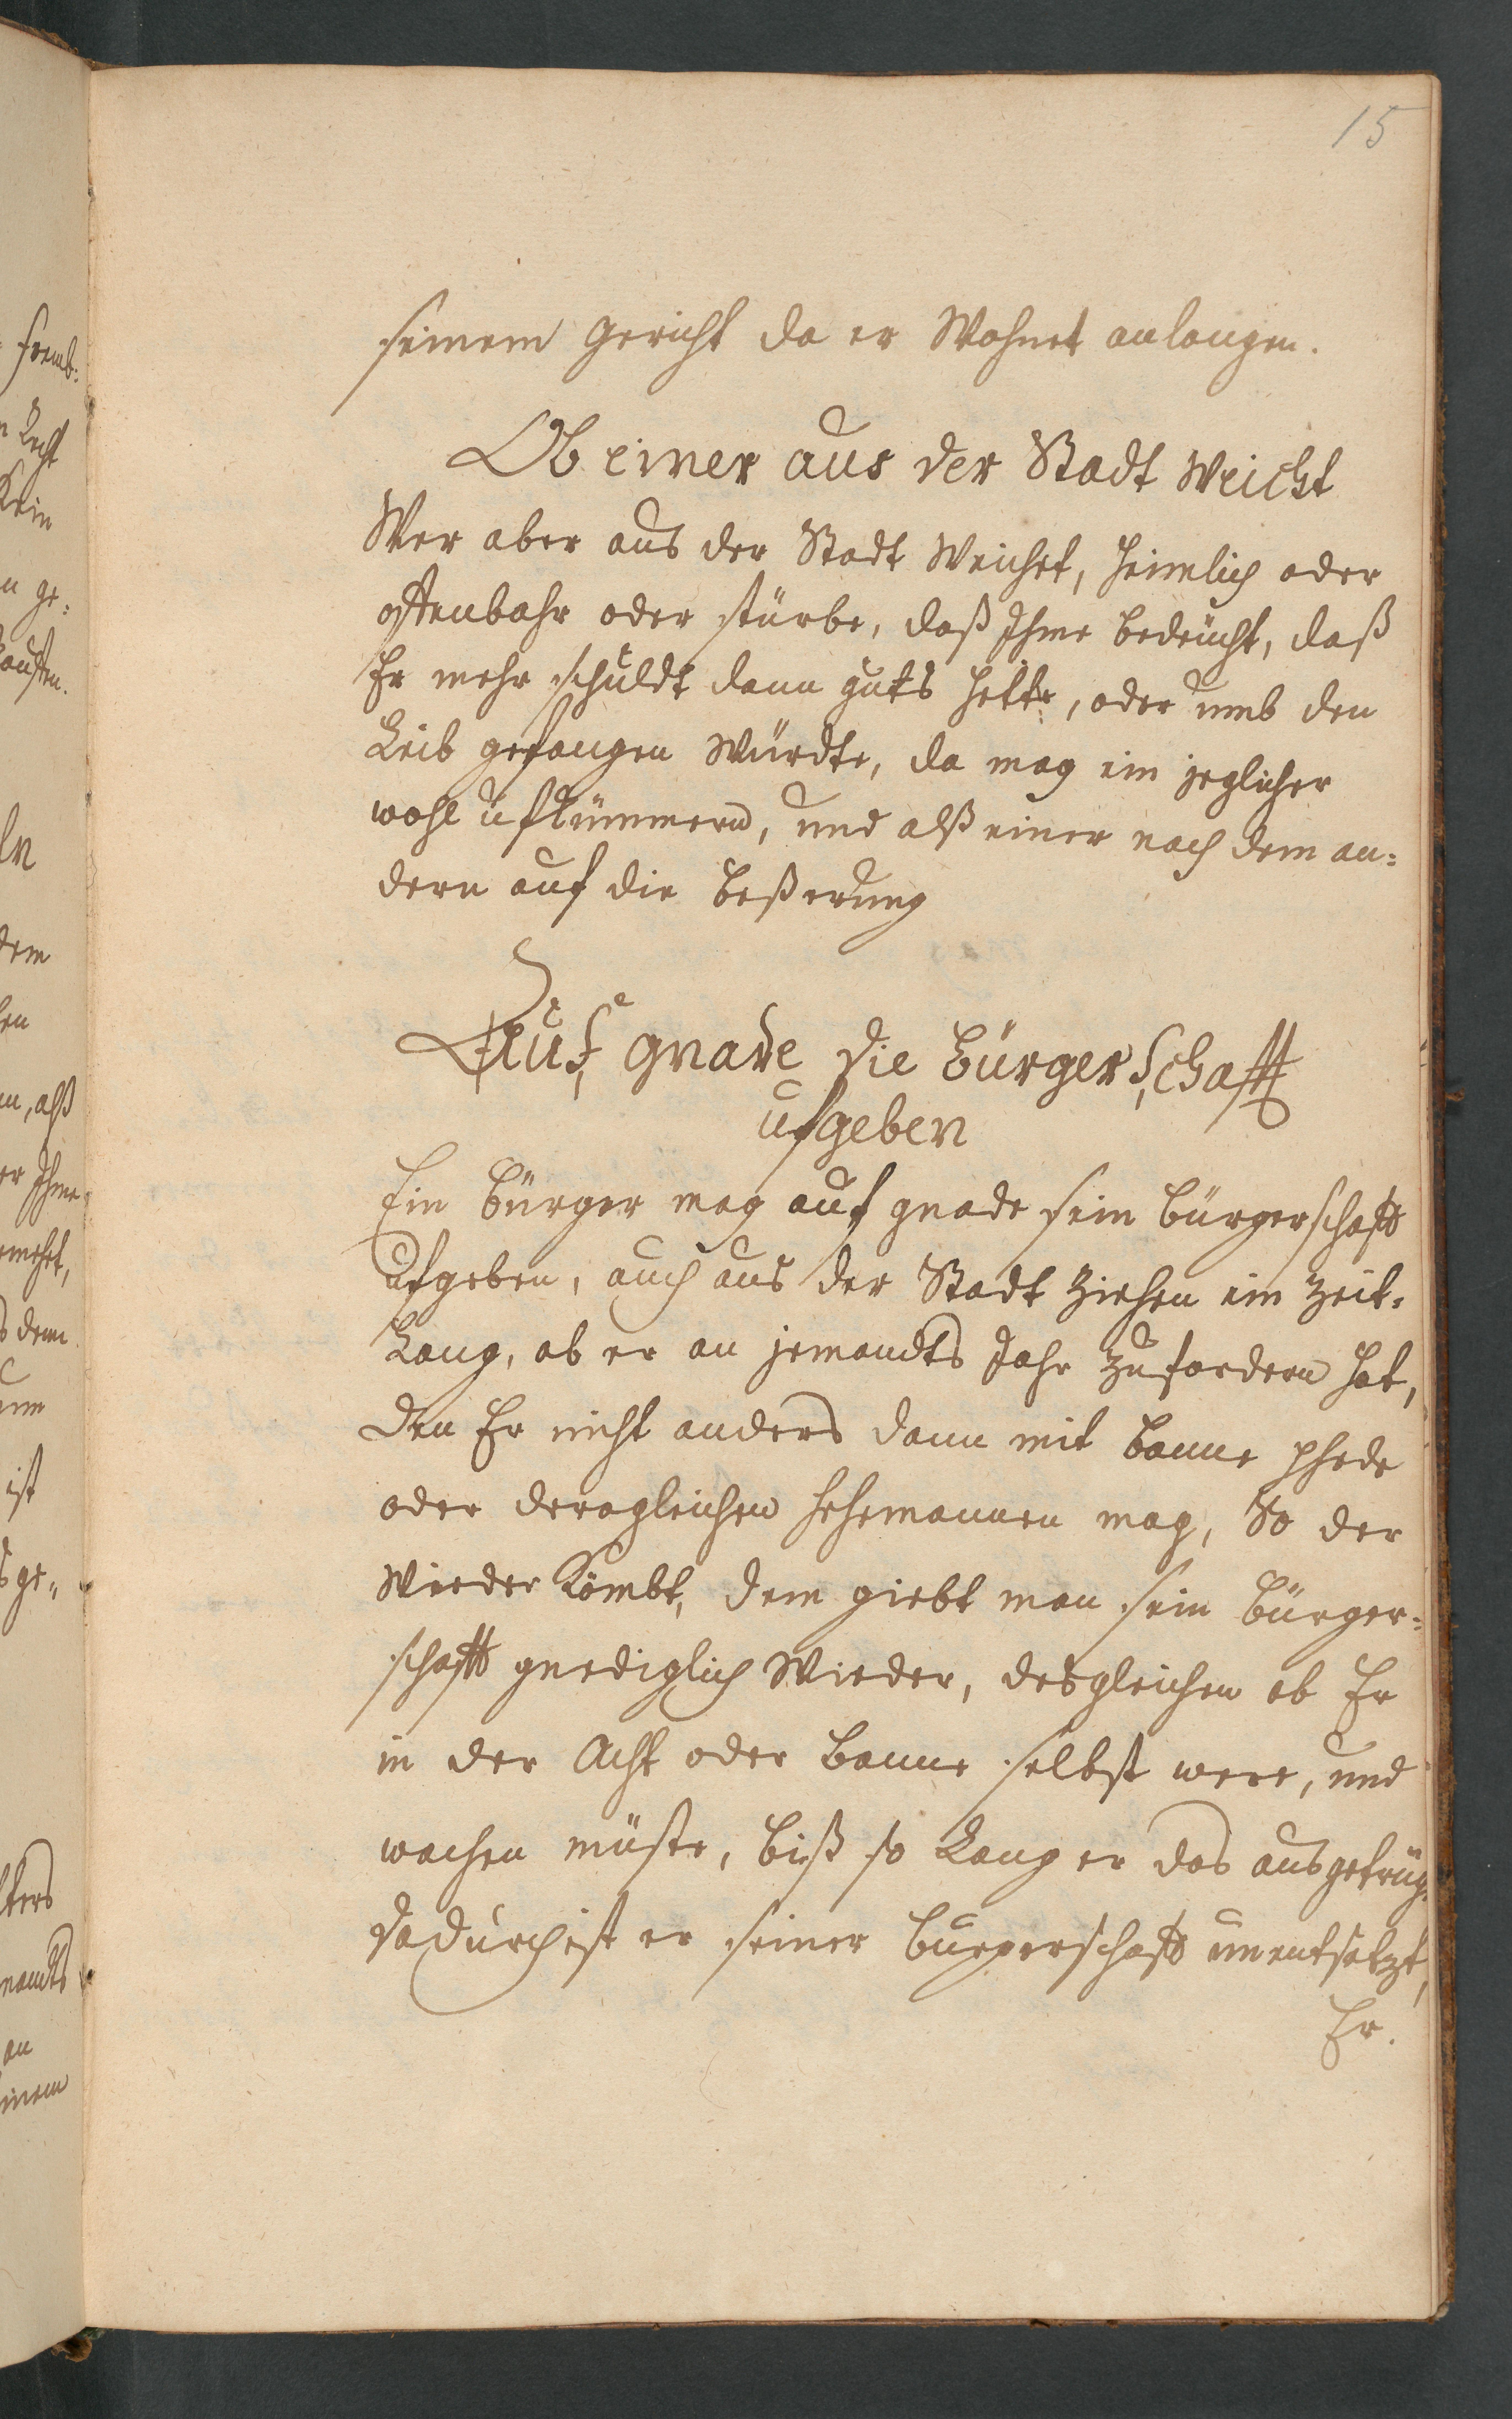 15
seinem Gericht da er Wohnet anlangen.
Ob einer aus der Stadt Weicht
Wer aber aus der Stadt Weichet, heimlich oder
offenbahr oder stürbe, daß Ihme bedeücht, daß
Er mehr schuldt dann guts hette, oder umb den
Leib gefangen Würdte, da mag ein jeglicher
wohl ufkümmern, und alß einer nach dem an=
dern auf die beßerung
Auf gnade die Bürgerschafft
ufgeben
Ein Bürger mag auf gnade sein Bürgerschafft
ufgeben, auch aus der Stadt Ziehen ein Zeit=
Lang, ob er an jemandts Jahr Zufordern hat,
den Er nicht anders dann mit Banne phede
oder deragleichen mag, So der
Wieder Kömbt, dem giebt man sein Bürger=
schafft gnediglich Wieder, desgleichen ob Er
in der Acht oder Banne selbst were, und
wachen müste, biß so Lang er das ausgetrüg.
dadurch ist er seiner Burgerschafft unentsetzt,
Er.
fremb=
Recht
Kein
n ge=
Kauffen.
dem
en
n, alß
er Ihme
dem
ist
ge=
mandts
an
einem